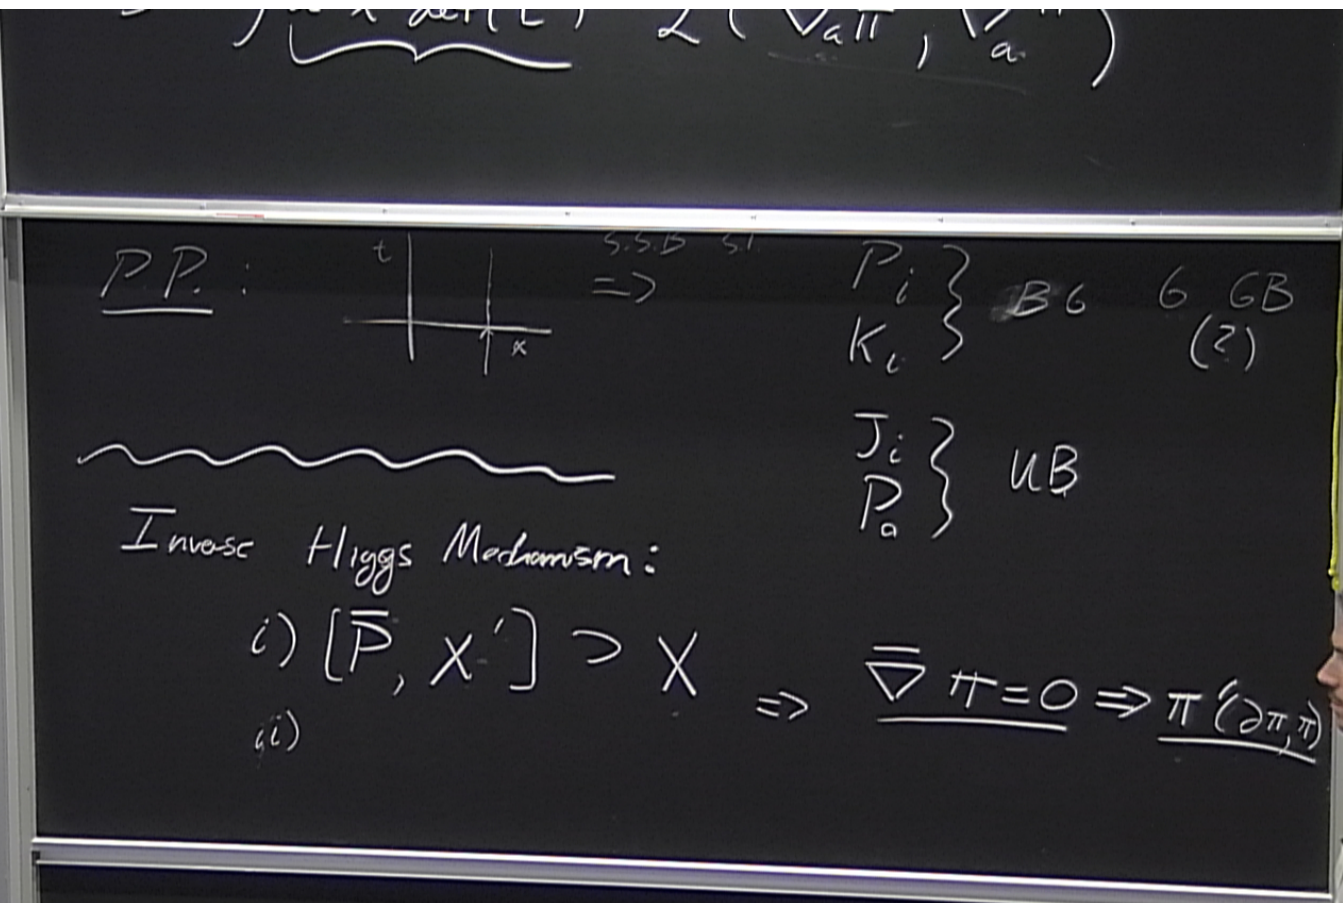 det(L) L(∇_a π,
P.P. : t x => S.S.B S.T. P_i K_i } BG 6 GB (?)
J_i P_a } UB
Inverse Higgs Mechanism:
i) [P̄, X'] ⊃ X => ∇̄ π = 0 => π'(∂π, π)
ii)